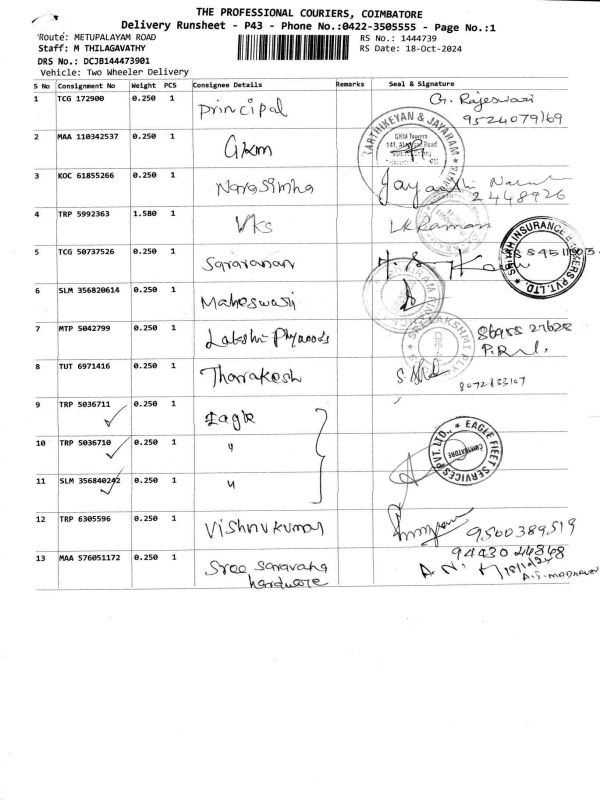 THE PROFESSIONAL COURIERS, COIMBATORE
Delivery Runsheet - P43 - Phone No.:0422-3505555 - Page No.:1
Route: METUPALAYAM ROAD RS No.: 1444739
Staff: M THILAGAVATHY RS Date: 18-Oct-2024
DRS No.: DCJB144473901
Vehicle: Two Wheeler Delivery
S No Consignment No Weight PCS Consignee Details Remarks Seal & Signature
1 TCG 172900 0.250 1 Principal G. Rajeswari
9524079169
2 MAA 110342537 0.250 1 GKM
KARTHIKEYAN & JAYARAM
GKM Towers
3 KOC 61855266 0.250 1 Narasimha Jayanthi
2448926
4 TRP 5992363 1.580 1 VKS
5 TCG 50737526 0.250 1 Saravanan
INSURANCE
PVT. LTD.
6 SLM 356820614 0.250 1 Maheswari
7 MTP 5042799 0.250 1 Lakshmi Plywoods
SRI LAKSHMI PLY
8 TUT 6971416 0.250 1 Tharakesh
8072833107
9 TRP 5036711 0.250 1 Eagle
10 TRP 5036710 0.250 1 "
EAGLE FLEET SERVICES PVT. LTD.,
COIMBATORE
11 SLM 356840242 0.250 1 "
12 TRP 6305596 0.250 1 Vishnukumar 9500389519
13 MAA 576051172 0.250 1 Sree Saravana
hardware